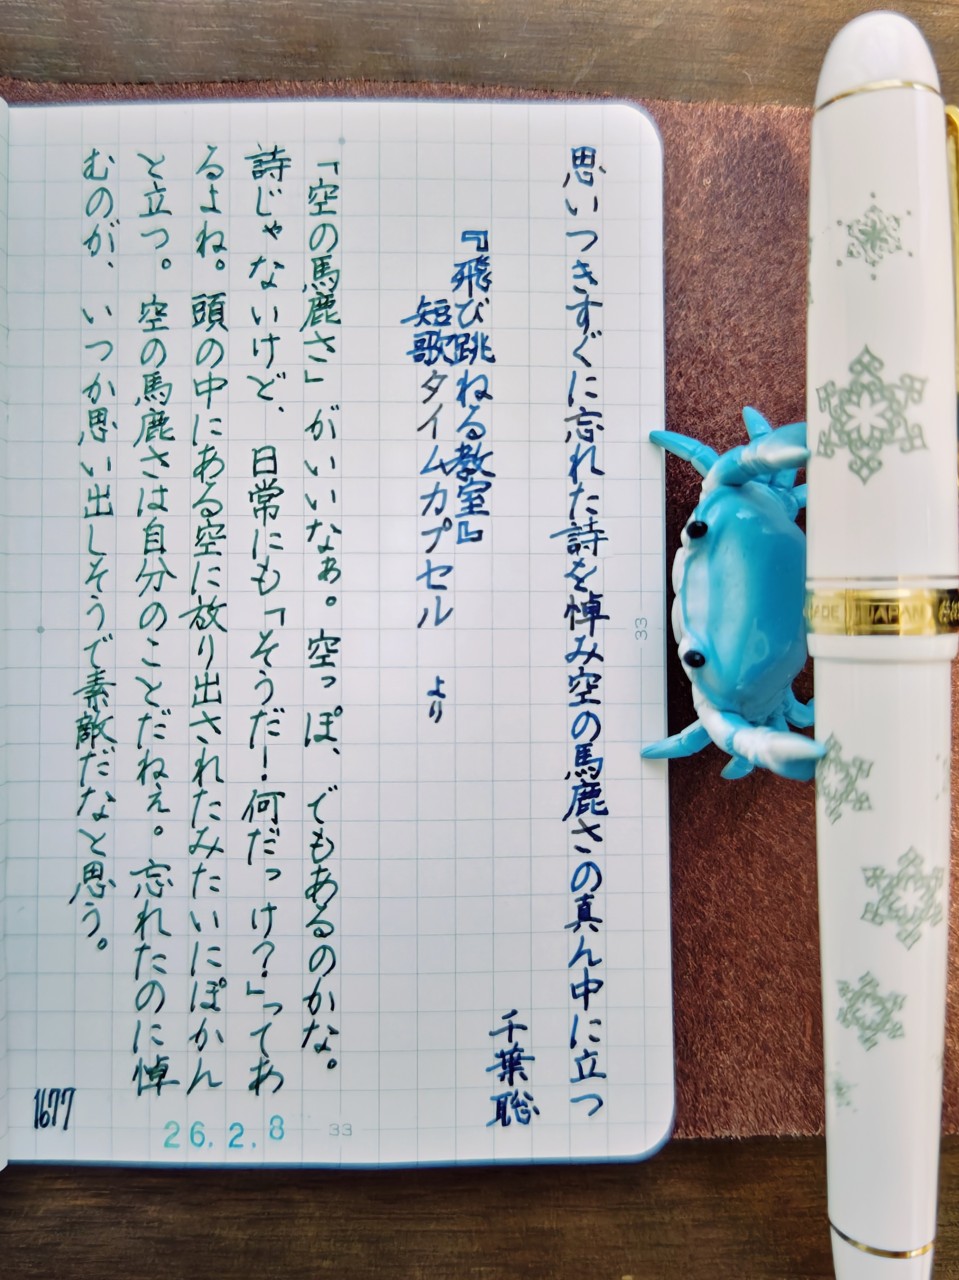 思いつきすぐに忘れた詩を悼み空の馬鹿さの真ん中に立つ
千葉聡
『飛び跳ねる教室』
短歌タイムカプセル より
「空の馬鹿さ」がいいなぁ。空っぽ、でもあるのかな。
詩じゃないけど、日常にも「そうだ!何だっけ?」ってあ
るよね。頭の中にある空に放り出されたみたいにぽかん
と立つ。空の馬鹿さは自分のことだねぇ。忘れたのに悼
むのが、いつか思い出しそうで素敵だなと思う。
1677
26.2.8
33
33
MADE IN JAPAN